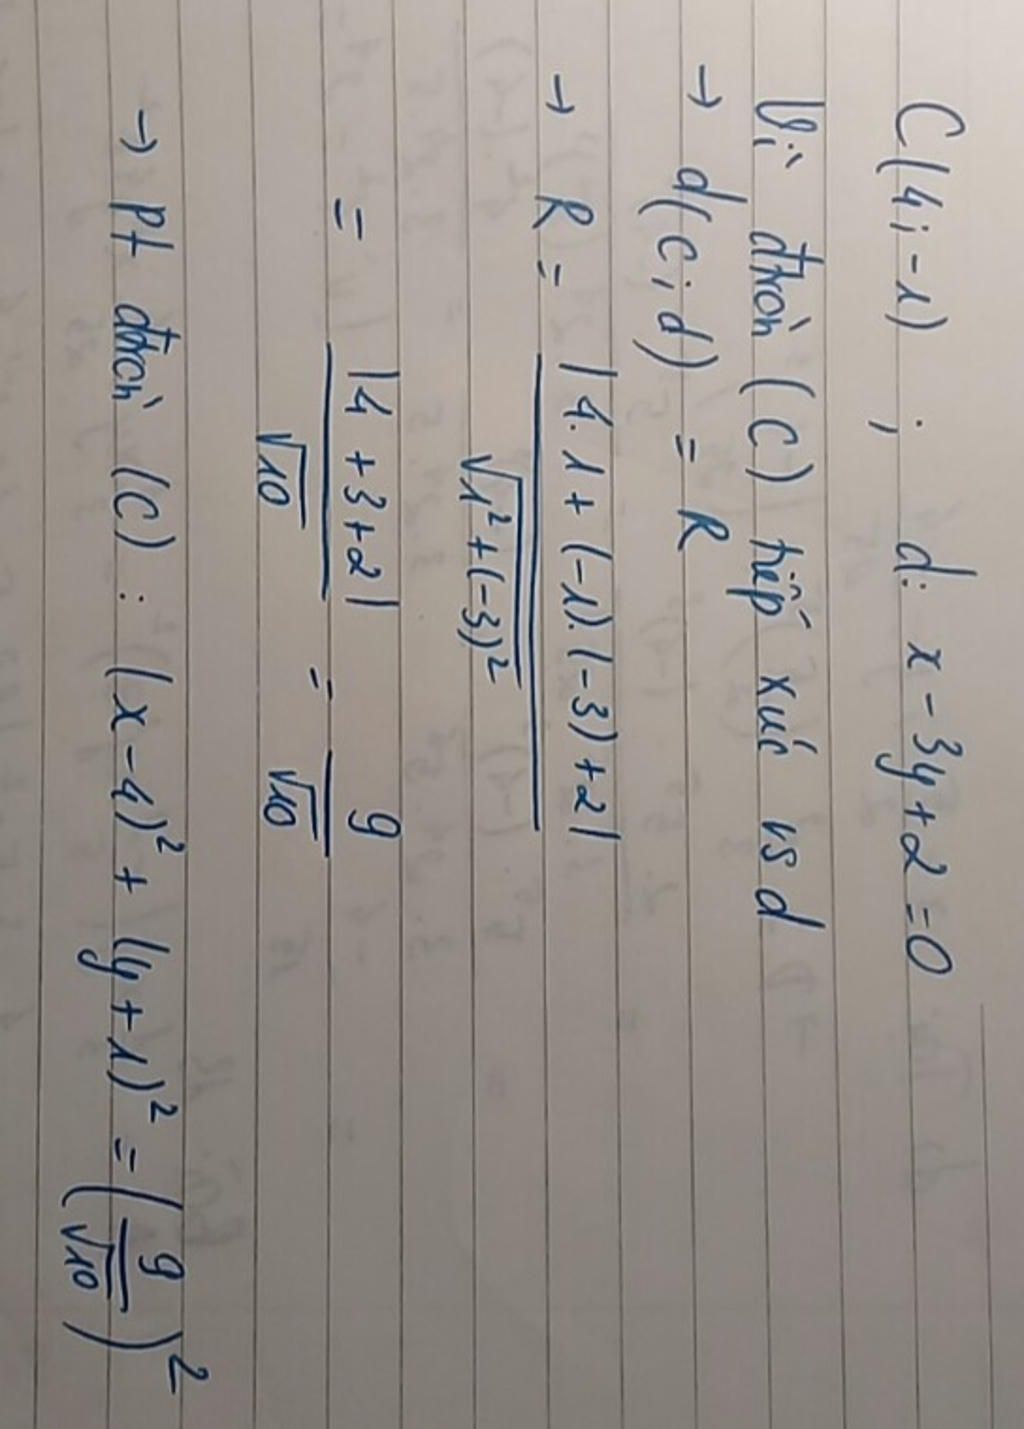 C(4; -1) ; d: x - 3y + 2 = 0
Vì đtròn (C) tiếp xúc vs d
→ d(C; d) = R
→ R = |4.1 + (-1).(-3) + 2| / √(1² + (-3)²)
= |4 + 3 + 2| / √10 = 9 / √10
→ pt đtròn (C) : (x - 4)² + (y + 1)² = (9 / √10)²